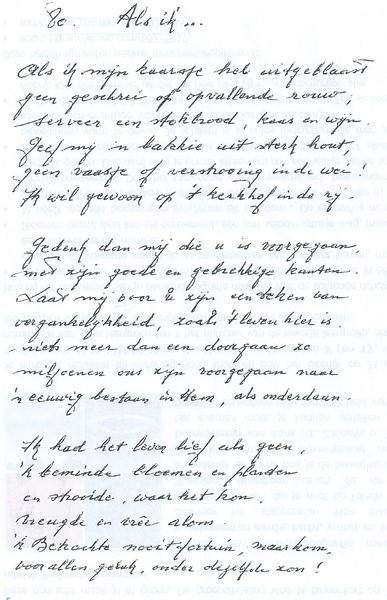 80. Als ik...
Als ik mijn kaarsje heb uitgeblaast
geen geschrei of opvallende rouw,
serveer een stokbrood, kaas en wijn.
Geef mij 'n bakkie uit sterk hout,
geen vaasje of verstrooing in de wei!
Ik wil gewoon op 't kerkhof in de rij.
Gedenk dan mij die u is voorgegaan,
met zijn goede en gebrekkige kanten.
Laat mij voor U zijn een teken van
vergankelijkheid, zoals 't leven hier is
niets meer dan een doorgaan zo
miljoenen ons zijn voorgegaan naar
'n eeuwig bestaan in Hem, als onderdaan.
Ik had het leven lief als geen,
'k beminde bloemen en planten
en strooide, waar het kon,
vreugde en vrêe alom
'k Betrachte nooit fortuin, maar kom,
voor allen geluk, onder dezelfde zon!